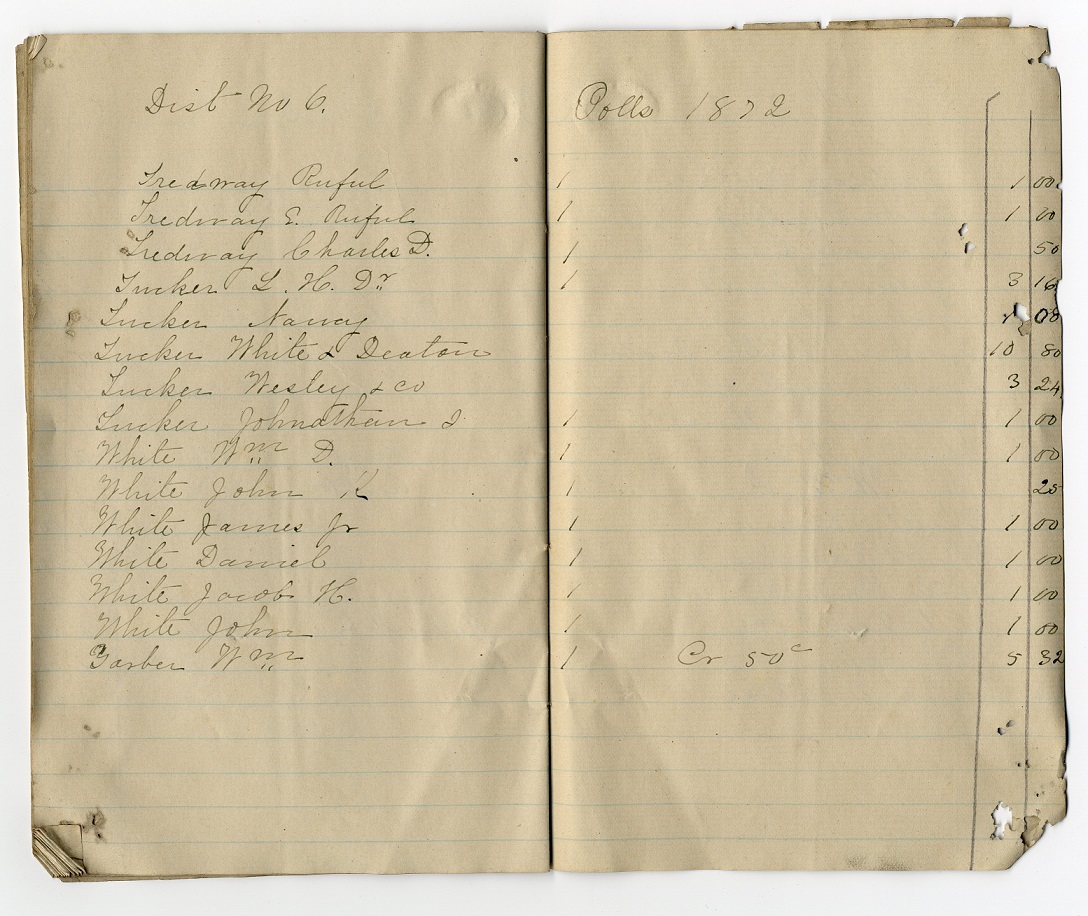 Dist No 6. Polls 1872
Tredway Ruful 1 1 00
Tredway E. Ruful 1 1 00
Tredway Charles D. 1 50
Tucker L. H. Dr 1 3 16
Tucker Nancy 08
Tucker White & Deaton 10 80
Tucker Wesley & co 3 24
Tucker Johnathan J 1 1 00
White Wm D. 1 1 00
White John K 1 25
White James Jr 1 1 00
White Daniel 1 1 00
White Jacob H. 1 1 00
White John 1 1 00
Garber Wm 1 Cr 50c 5 32